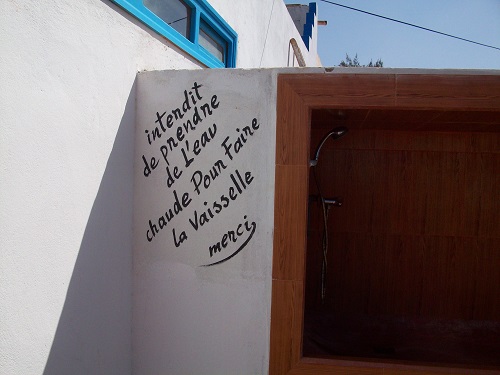 interdit
de prendre
de L'eau
chaude Pour Faire
la Vaisselle
merci